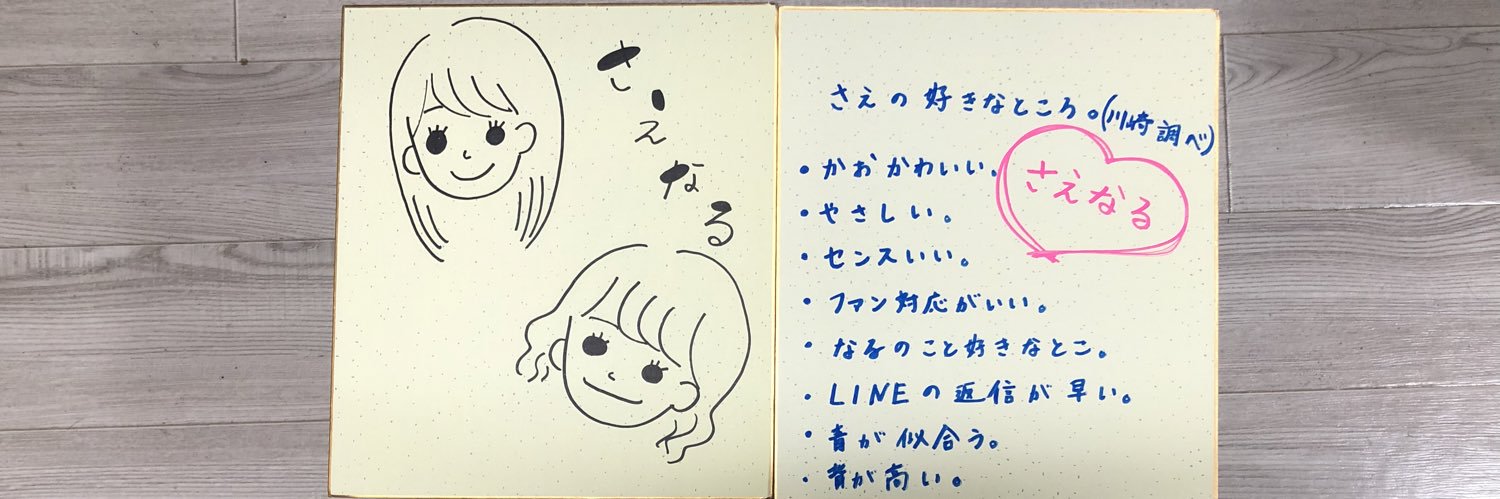 さえなる
さえの好きなところ。(川崎調べ)
さえなる
・かおかわいい。
・やさしい。
・センスいい。
・ファン対応がいい。
・なるのこと好きなとこ。
・LINEの返信が早い。
・青が似合う。
・背が高い。